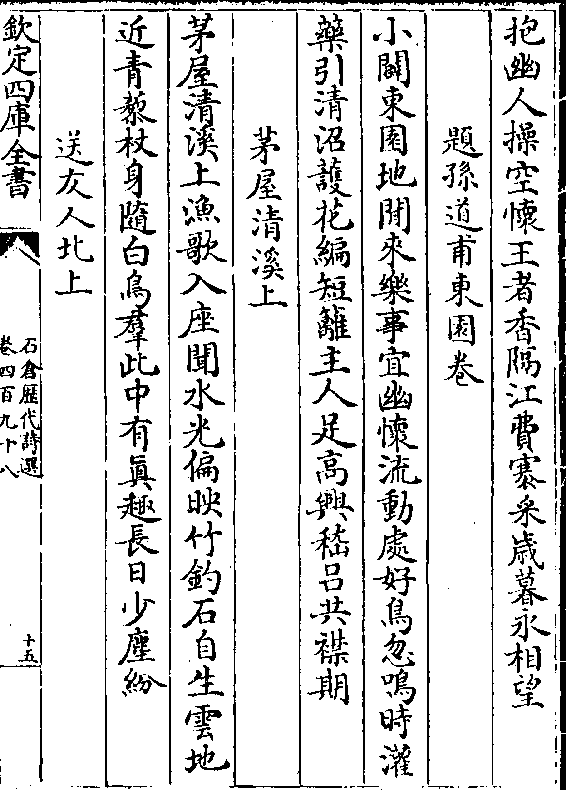 抱幽人操空懷王者香隔江費寨采歳暮永相望
題孫道甫東園卷
小闢東園地閒來樂事宜幽懷流動處好鳥忽鳴時灌
藥引清沼護花編短籬主人足高興嵇吕共襟期
茅屋清溪上
茅屋清溪上漁歌入座聞水光偏映竹釣石自生雲地
近青藜杖身隨白鳥羣此中有眞趣長日少塵紛
送友人北上
欽定四庫全書
石倉歴代詩選
卷四百九十八
十五